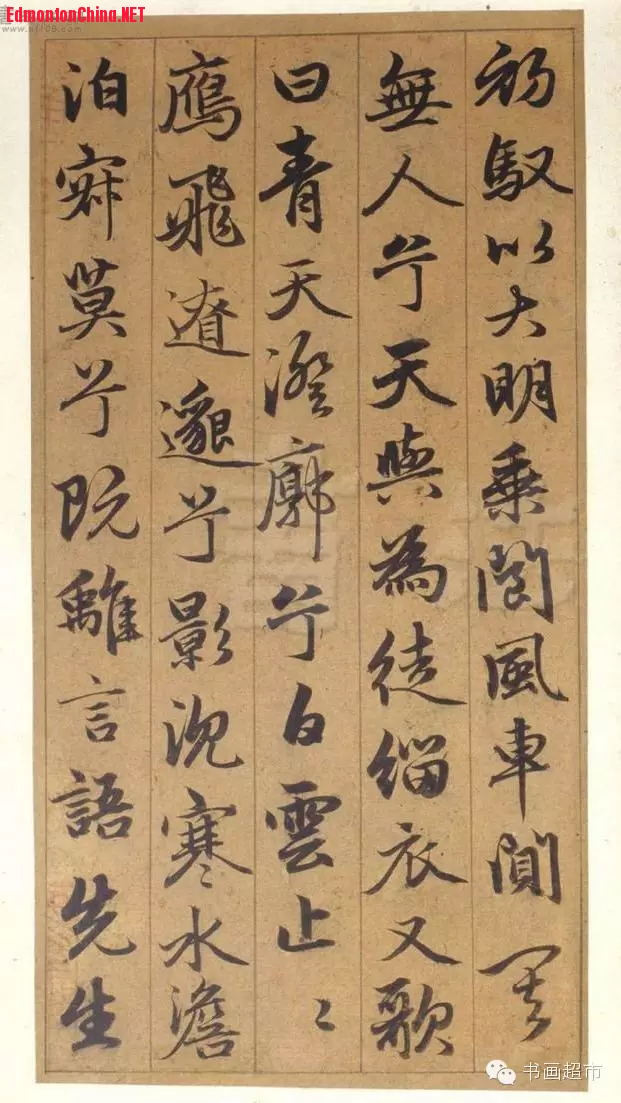 EdmontonChina.NET
初馭以大明乘閬風車闃其
無人兮天與為徒緇衣又歌
曰青天澄廓兮白雲止〻
鷹飛遼邈兮影沈寒水澹
泊寂莫兮既離言語先生
书画超市